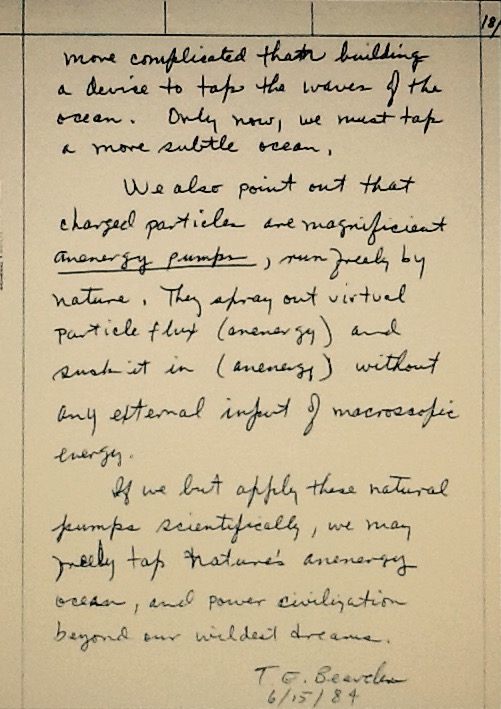 18/
more complicated than building
a device to tap the waves of the
ocean. Only now, we must tap
a more subtle ocean.
We also point out that
charged particles are magnificient
anenergy pumps, run freely by
nature. They spray out virtual
particle flux (anenergy) and
suck it in (anenergy) without
any external input of macroscopic
energy.
If we but apply these natural
pumps scientifically, we may
freely tap nature's anenergy
ocean, and power civilization
beyond our wildest dreams.
T. E. Bearden
6/15/84